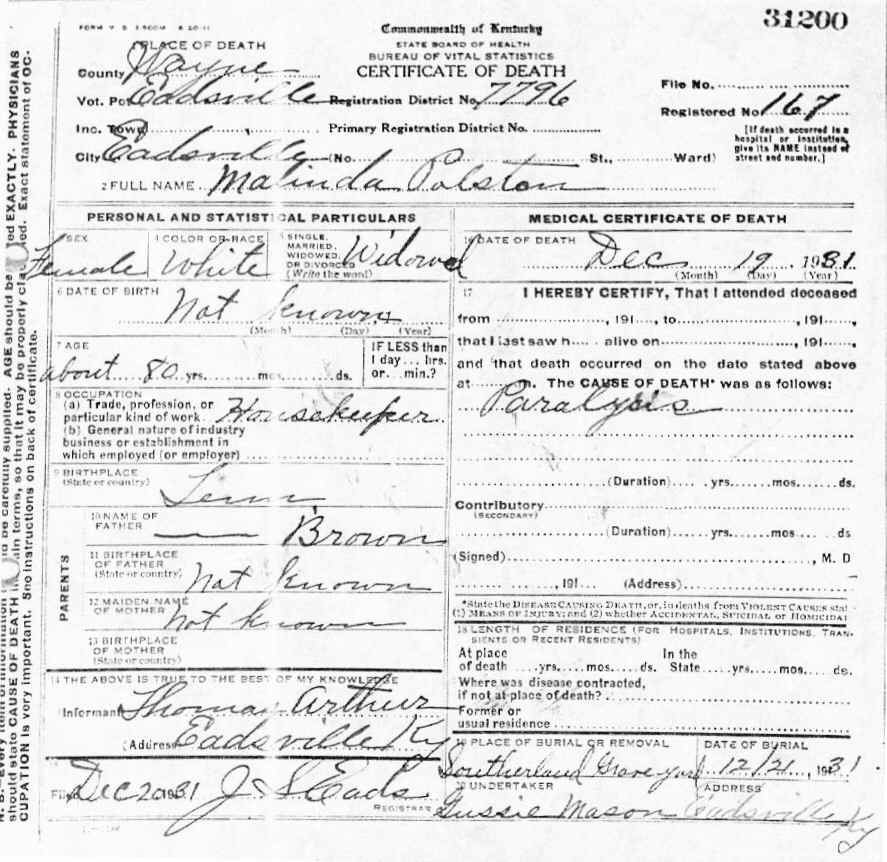 31200
Commonwealth of Kentucky
STATE BOARD OF HEALTH
BUREAU OF VITAL STATISTICS
CERTIFICATE OF DEATH
1 PLACE OF DEATH
County Wayne
Vot. Pct Eadsville Registration District No. 7796
File No.
Registered No. 167
Inc. Town Primary Registration District No.
[If death occurred in a
hospital or institution,
give its NAME instead of
street and number.]
City Eadsville (No. St., Ward)
2 FULL NAME Malinda Polston
PERSONAL AND STATISTICAL PARTICULARS
3 SEX
Female
4 COLOR OR RACE
White
5 SINGLE,
MARRIED,
WIDOWED,
OR DIVORCED
(Write the word)
Widowed
6 DATE OF BIRTH
Not Known
(Month) (Day) (Year)
7 AGE
about 80 yrs. mos. ds.
IF LESS than
1 day... hrs.
or... min.?
8 OCCUPATION
(a) Trade, profession, or
particular kind of work Housekeeper
(b) General nature of industry
business or establishment in
which employed (or employer)
9 BIRTHPLACE
(State or country)
Tenn
PARENTS
10 NAME OF
FATHER
— Brown
11 BIRTHPLACE
OF FATHER
(State or country) Not Known
12 MAIDEN NAME
OF MOTHER Not Known
13 BIRTHPLACE
OF MOTHER
(State or country)
14 THE ABOVE IS TRUE TO THE BEST OF MY KNOWLEDGE
Informant Thomas Arthur
(Address Eadsville Ky
Dec 20 1931 J. S. Eads
REGISTRAR
MEDICAL CERTIFICATE OF DEATH
16 DATE OF DEATH
Dec 19 1931
(Month) (Day) (Year)
17 I HEREBY CERTIFY, That I attended deceased
from , 191 , to , 191 ,
that I last saw h alive on , 191 ,
and that death occurred on the date stated above
at m. The CAUSE OF DEATH* was as follows:
Paralysis
(Duration) yrs. mos. ds.
Contributory
(SECONDARY)
(Duration) yrs. mos. ds
(Signed) , M. D
, 191 (Address)
*State the DISEASE CAUSING DEATH, or, in deaths from VIOLENT CAUSES stat-
(1) MEANS OF INJURY; and (2) whether ACCIDENTAL, SUICIDAL or HOMICIDAL
18 LENGTH OF RESIDENCE (FOR HOSPITALS, INSTITUTIONS, TRAN-
SIENTS OR RECENT RESIDENTS)
At place In the
of death yrs. mos. ds. State yrs. mos. ds.
Where was disease contracted,
if not at place of death?
Former or
usual residence
19 PLACE OF BURIAL OR REMOVAL
Southerland Graveyard
DATE OF BURIAL
12/21, 1931
20 UNDERTAKER
Gussie Mason
ADDRESS
Eadsville Ky
be carefully supplied. AGE should be EXACTLY. PHYSICIANS
should state CAUSE OF DEATH in terms, so that it may be properly Exact statement of OC-
CUPATION is very important. See instructions on back of certificate.